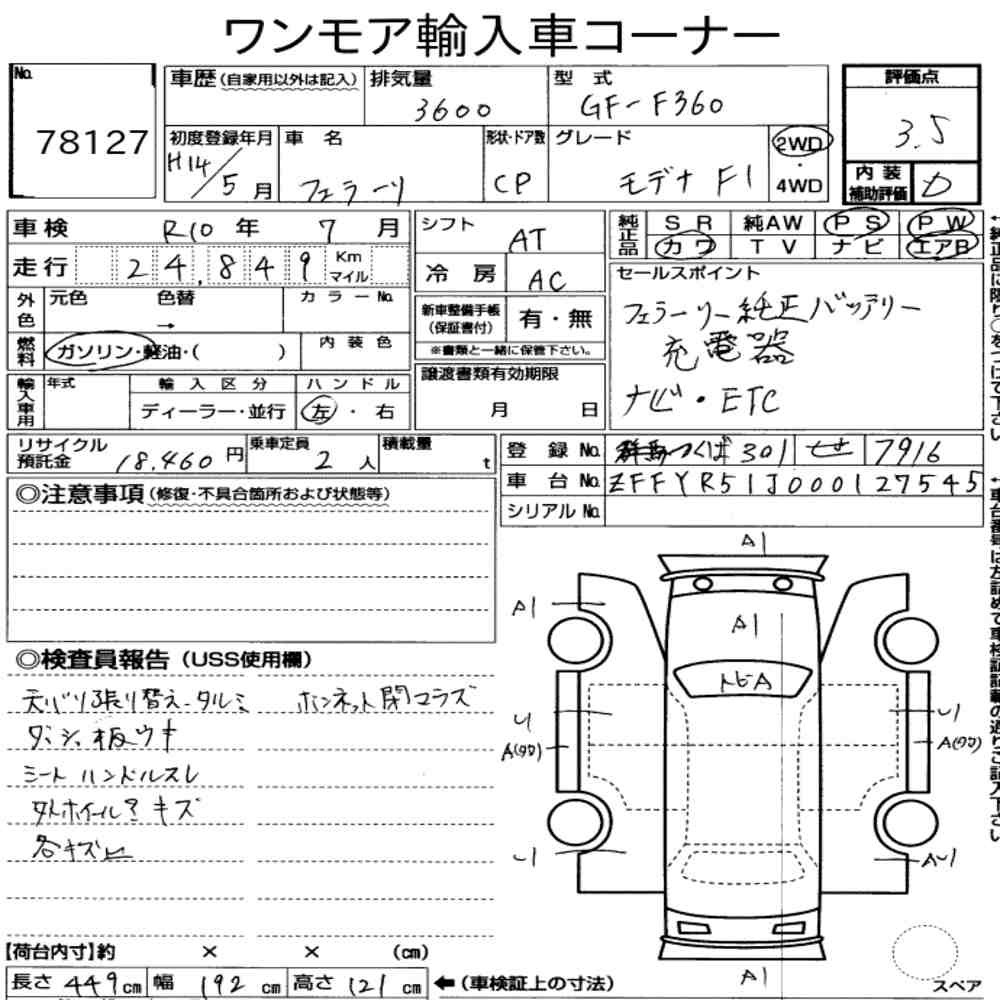 ワンモア輸入車コーナー
No. 78127
車歴(自家用以外は記入) 排気量 3600 型式 GF-F360
評価点 3.5
初度登録年月 H14/5月 車名 フェラーリ 形状・ドア数 CP グレード モデナ F1 2WD・4WD
内装補助評価 D
車検 R10年 7月
シフト AT
純正品 SR 純AW PS PW
カワ TV ナビ エアB
走行 24,849 Km マイル
冷房 AC
セールスポイント
フェラーリー純正バッテリー
充電器
ナビ・ETC
外色 元色 色替 → カラーNo.
新車整備手帳(保証書付) 有・無
※書類と一緒に保管下さい。
燃料 ガソリン・軽油・( ) 内装色
譲渡書類有効期限
月 日
輸入車用 年式 輸入区分 ディーラー・並行 ハンドル 左・右
リサイクル預託金 18.460円 乗車定員 2人 積載量 t
登録No. つくば 301 せ 7916
車台No. ZFFYR51J000127545
シリアルNo.
◎注意事項(修復・不具合箇所および状態等)
◎検査員報告(USS使用欄)
天バリ張り替え-タルミ ボンネット閉マラズ
ダッシュ板ウキ
シート ハンドルスレ
外ホイールキズ
各キズ凹
A1
A1
A1
トビA
U1
A(タワ)
U1
U1
A(タワ)
AU1
A1
スペア
【荷台内寸】約 × × (cm)
長さ 449cm 幅 192cm 高さ 121cm ←(車検証上の寸法)